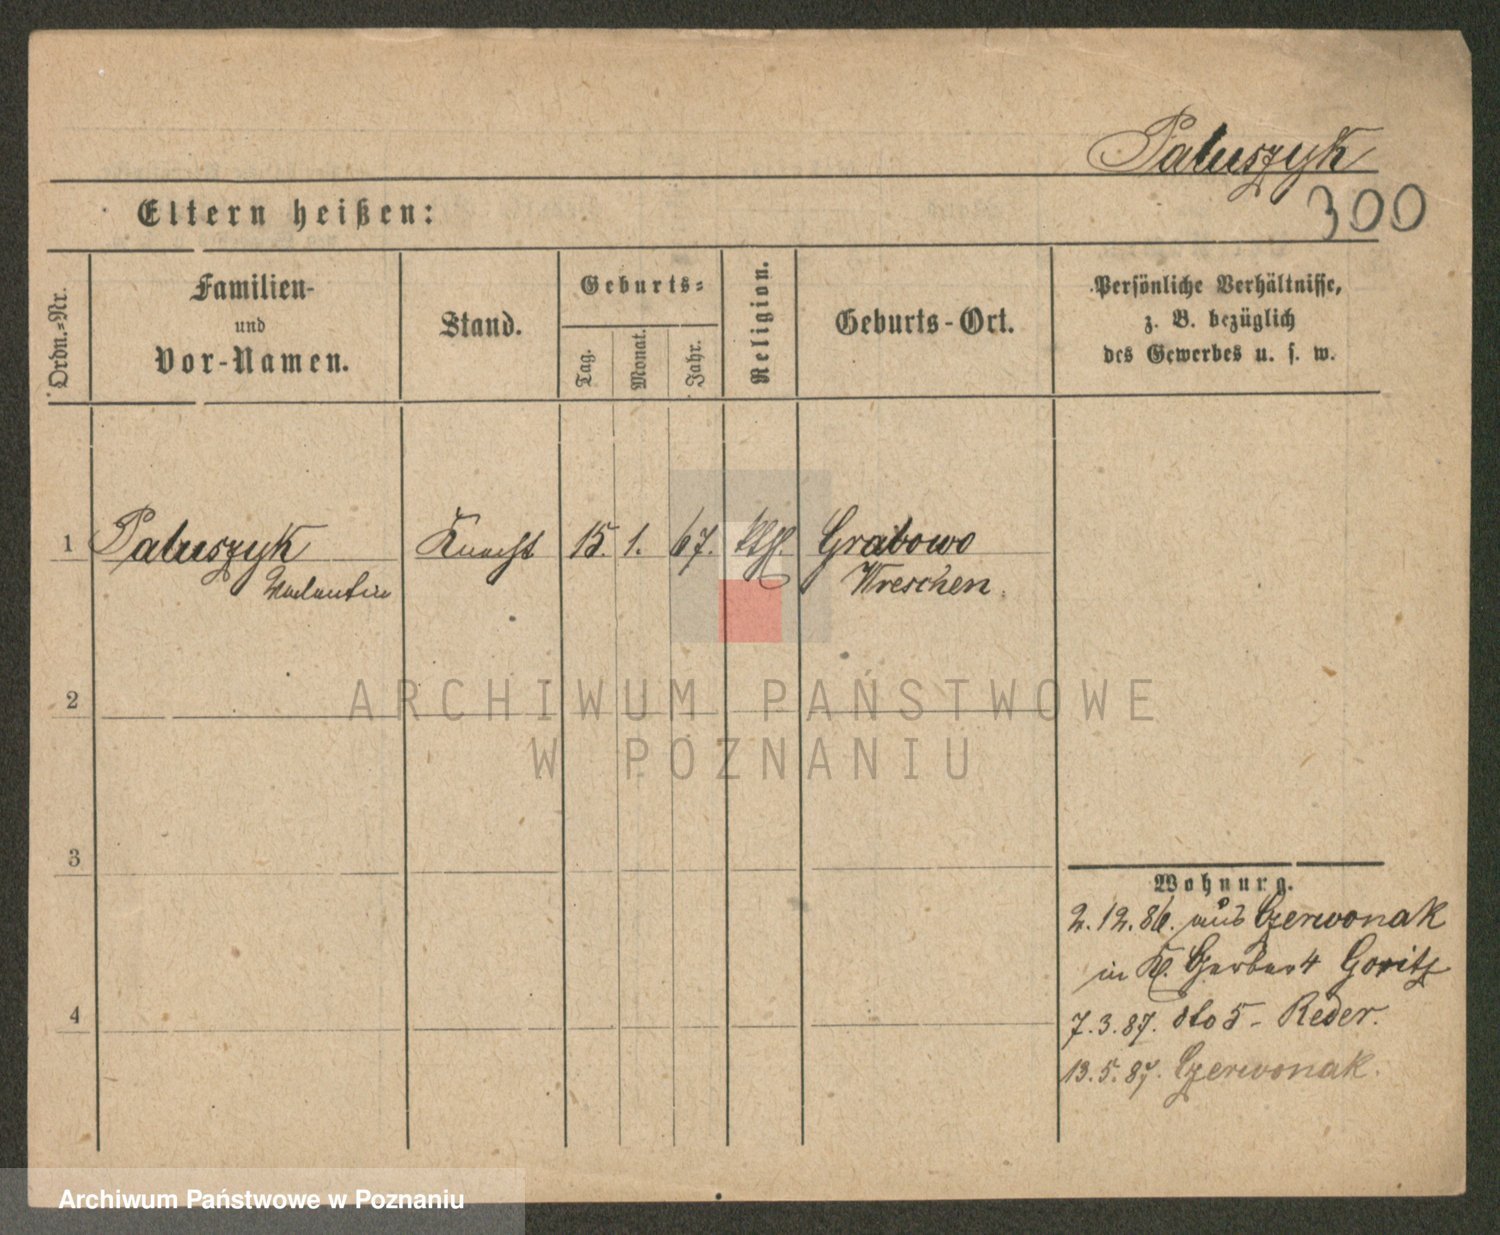 Paluszyk
300
Eltern heißen:
Ordn.=Nr.
Familien-
und
Vor-Namen.
Stand.
Geburts=
Tag.
Monat.
Jahr.
Religion.
Geburts-Ort.
Persönliche Verhältnisse,
z. B. bezüglich
des Gewerbes u. s. w.
1 Paluszyk Knecht 15. 1. 67. kth. Grabowo
Valentin Wreschen.
2
ARCHIWUM PAŃSTWOWE
W POZNANIU
3
Wohnung.
2.12.86. aus Czerwonak
in Kl. Gerber 4 Goritz
4
7.3.87. dto 5 - Reder.
13.5.87. Czerwonak.
Archiwum Państwowe w Poznaniu